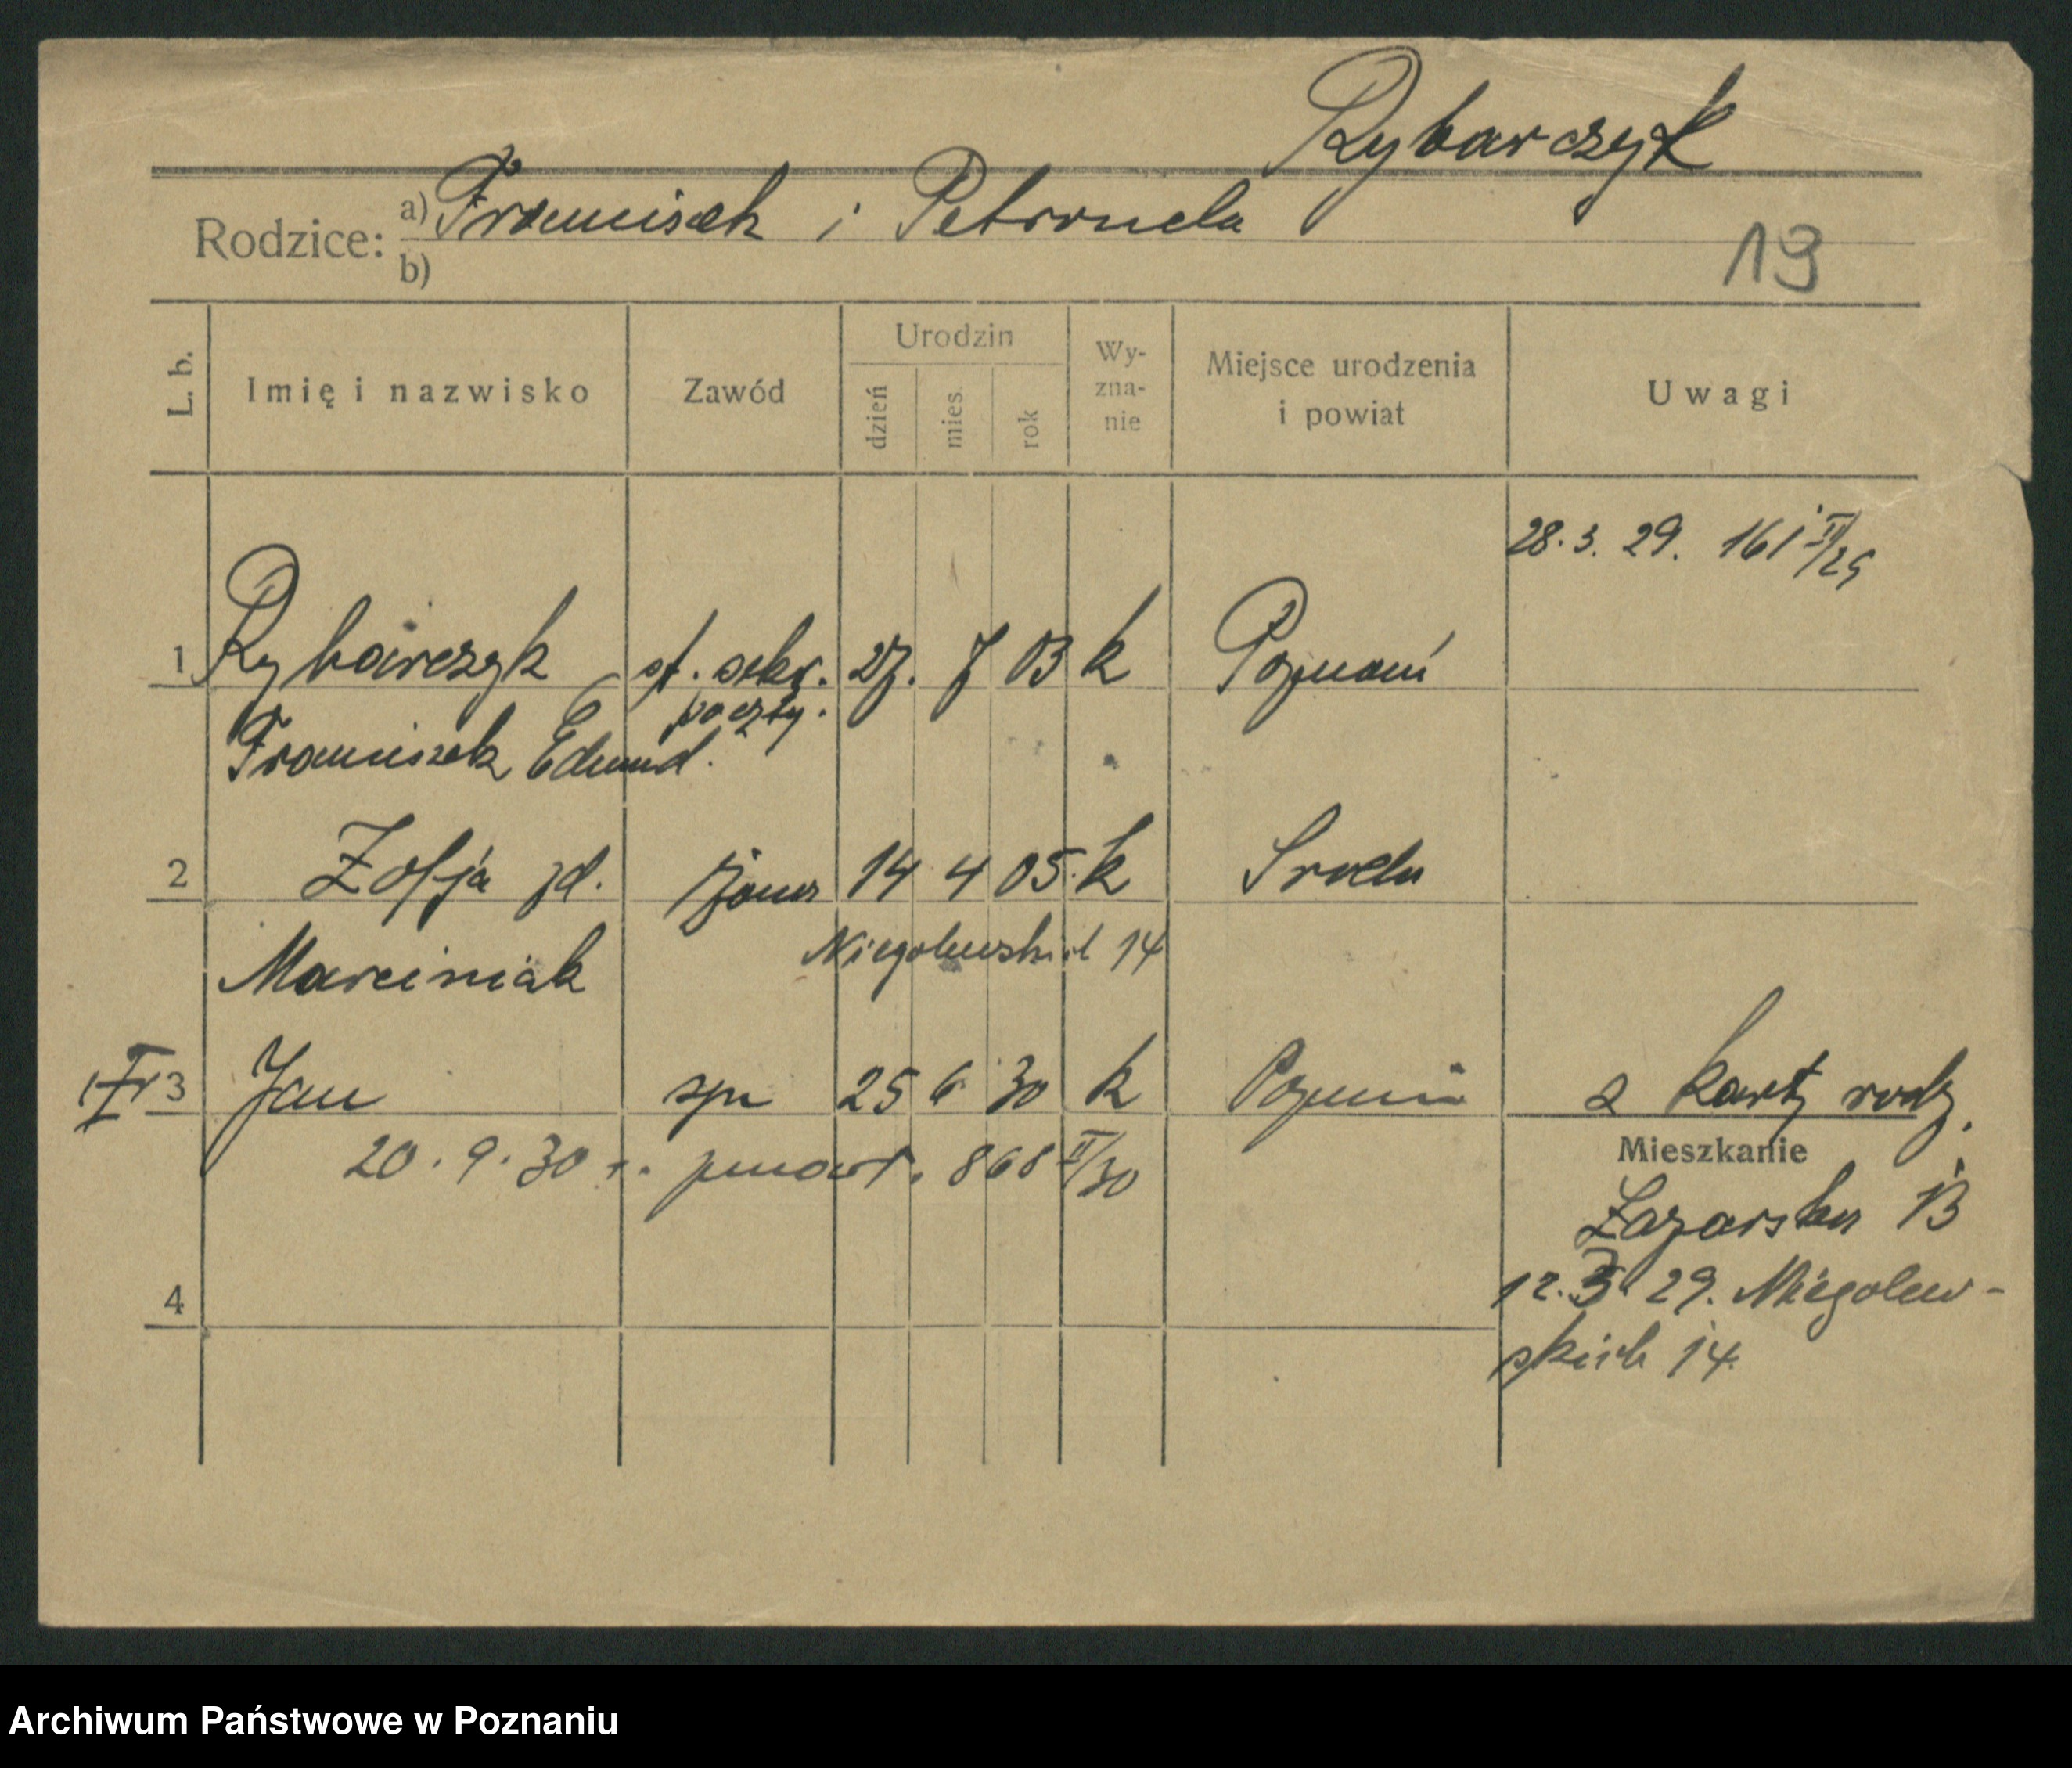 Rybarczyk
Rodzice: a) Franciszek i Petronela
b)
19
L. b. Imię i nazwisko Zawód Urodzin dzień mies. rok Wy-zna-nie Miejsce urodzenia i powiat Uwagi
28.3.29. 161 II/29
1 Rybarczyk st. sekr. 27. 7 03 k Poznań
poczty.
Franciszek Edmund.
2 Zofja zd. żona 14 4 05. k Środa
Marciniak Niegolewskich 14
3 Jan syn 25 6 30 k Poznań z karty rodz.
20.9.30 r. zmarł. 868 II/30
Mieszkanie
Łazarska 13
12.3.29. Niegolew-
4
skich 14.
Archiwum Państwowe w Poznaniu